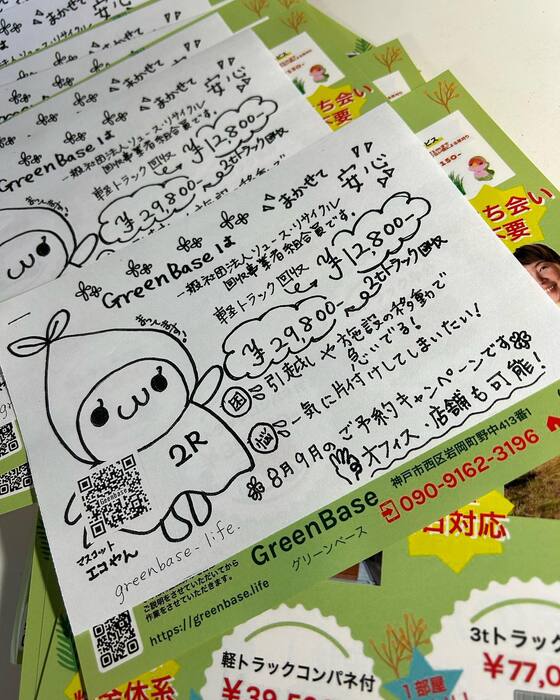 まかせて 安心
GreenBaseは
一般社団法人リユース・リサイクル
回収事業者組合員です。
軽トラック回収 ¥12,800-
¥29,800- 2tトラック回収
困 引越しや施設の移動で
急いでる!
悩 一気に片付けしてしまいたい!
※8月9月のご予約キャンペーンです
オフィス・店舗も可能!
2R
マスコット
エコやん
greenbase-life.
GreenBase
グリーンベース
神戸市西区岩岡町野中413番1
090-9162-3196
ご説明をさせていただいてから
作業をさせていただきます。
https://greenbase.life
軽トラックコンパネ付
1部屋
3tトラック
¥77,0
日対応
まかせて 安心
GreenBaseは
一般社団法人リユース・リサイクル
回収事業者組合員です。
軽トラック回収 ¥12,800-
¥29,800- 2tトラック回収
ち会い
不要
ち会い
不要